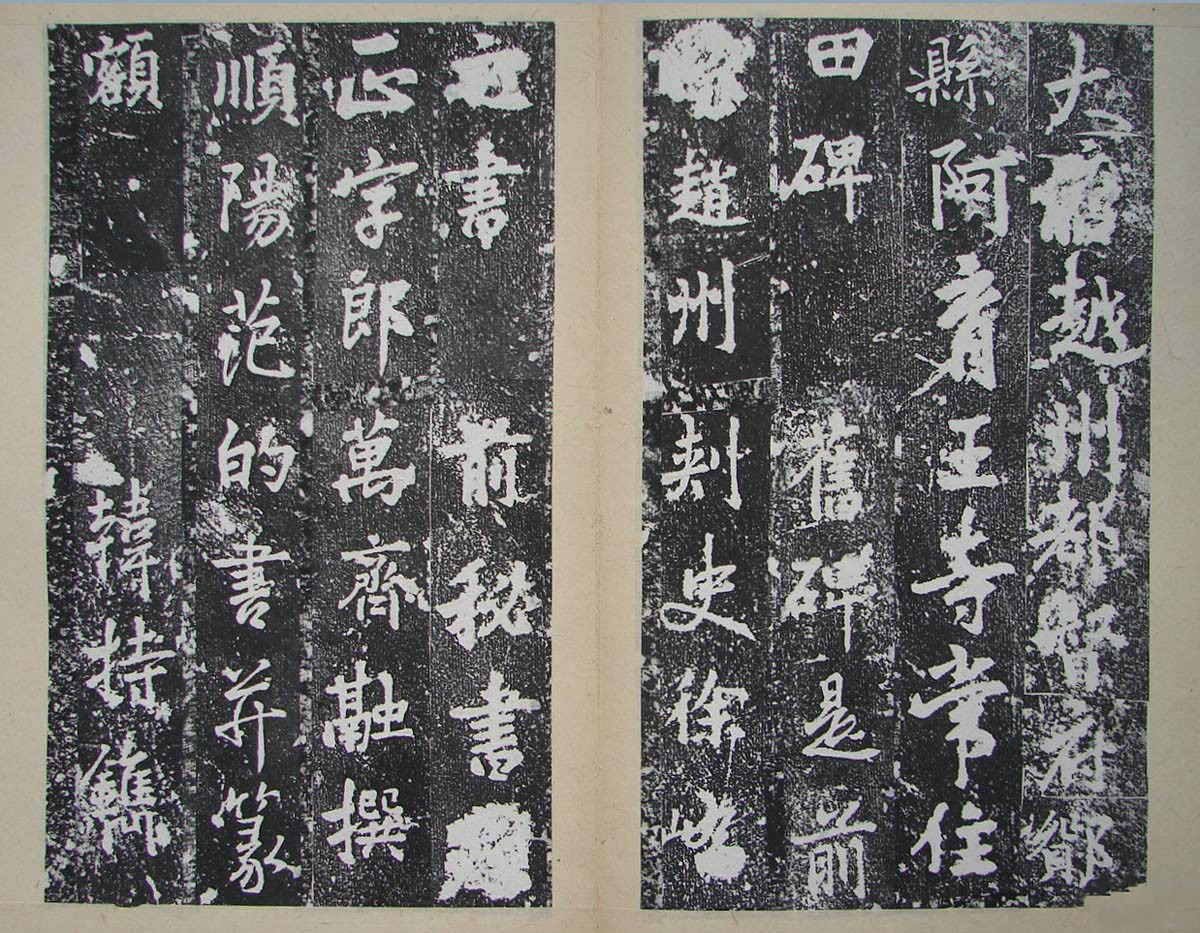 大唐越州都督府鄮
縣阿育王寺常住
田碑 舊碑是前
趙州刺史徐嶠
之書 前秘書
正字郎萬齊融撰
順陽范的書并篆
額 韓持鐫